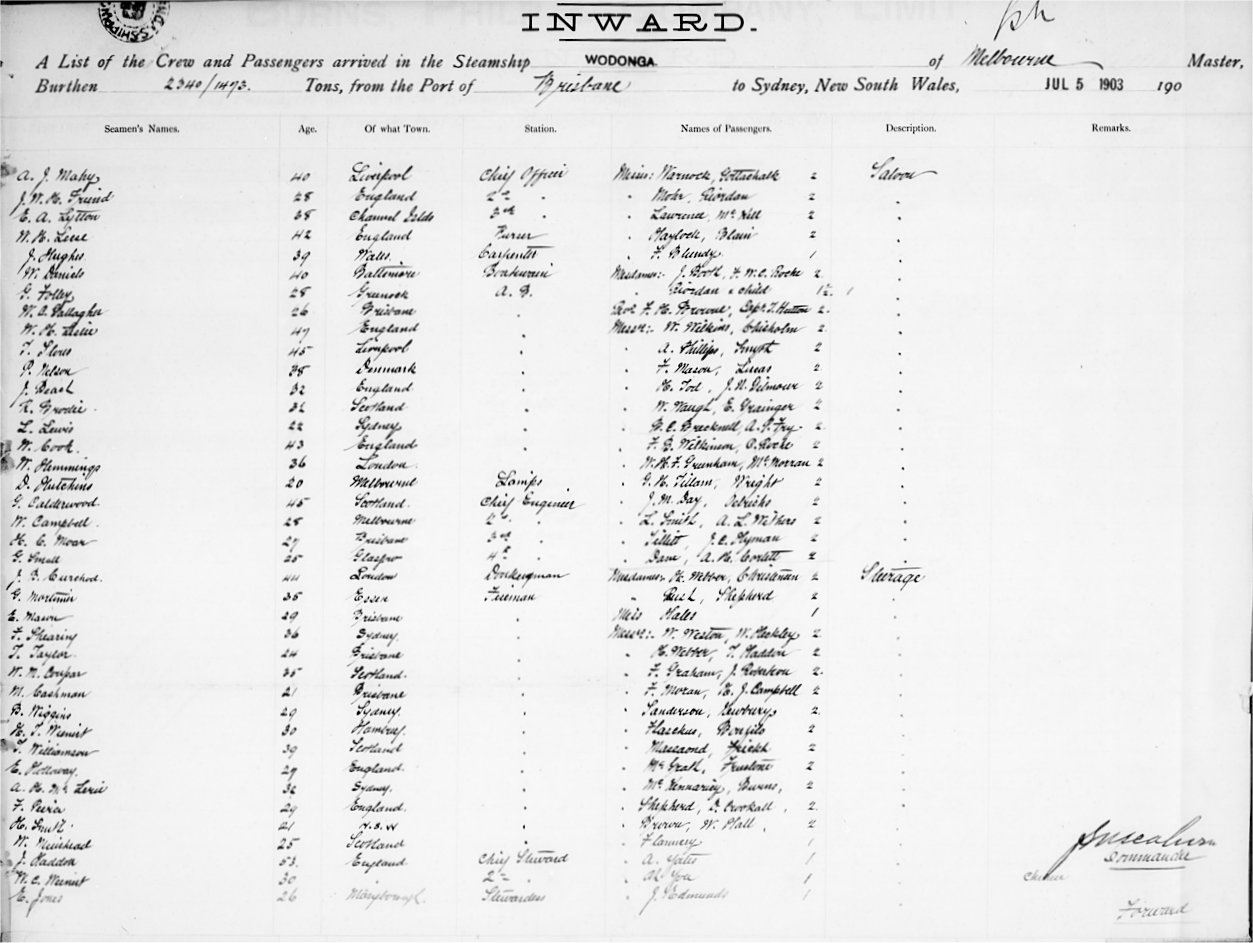 INWARD.
A List of the Crew and Passengers arrived in the Steamship WODONGA of Melbourne Master,
Burthen 2340/1473. Tons, from the Port of Brisbane to Sydney, New South Wales, JUL 5 1903 190
Seamen's Names. Age. Of what Town. Station. Names of Passengers. Description. Remarks.
A. J. Mahy 40 Liverpool Chief Officer Misses: Warnock, Gottschalk 2 Saloon
J. W. H. Friend 28 England 2nd " Mohr, Riordan 2
E. A. Lytton 38 Channel Islds 3rd " Lawrence, McNeil 2
W. H. Leese 42 England Purser " Haylock, Blain 2
J. Hughes 39 Wales Carpenter " F. Blundy 1
W. Daniels 40 Baltimore Boatswain Mesdames:- J. Booth, F. W. C. Roche 2
G. Foley 28 Greenock A. B. " Riordan & child 1½
W. O. Gallagher 26 Brisbane Revd F. H. Browne, Capt. T. Hutton 2
W. H. Leslie 47 England Messrs:- W. Wilkins, Chisholm 2
T. 45 Liverpool " A. Phillips, Smyth 2
P. Nelson 38 Denmark " F. Mason, Lucas 2
J. Beach 32 England " H. Tod, J. N. Gilmour 2
R. Brodie 32 Scotland " W. Waugh, E. Grainger 2
L. Lewis 22 Sydney " G. C. Bracknell, A. P. Fry 2
W. Cook 43 England " F. B. Wilkinson, O. Roche 2
W. Hemmings 36 London " W. H. F. Greenham, McMorran 2
D. Hutchins 20 Melbourne Lamps " G. H. Tillam, Wright 2
G. Calderwood 45 Scotland Chief Engineer " J. M. Day, 2
W. Campbell 28 Melbourne 2nd " L. Smith, A. L. Withers 2
H. C. Moar 27 Brisbane 3rd " Tillett, J. C. Hyman 2
G. Small 25 Glasgow 4th " Dane, A. H. Corlett 2
J. B. Curchod 44 London Donkeyman Mesdames:- H. Webber, Christensen 2 Steerage
G. Mortimer 35 Essex Fireman " Rush, Shepherd 2
E. Mason 29 Brisbane Miss Hales 1
F. Shearing 36 Sydney Messrs:- W. Weston, W. Heckley 2
T. Taylor 24 Brisbane " H. Webber, T. Haddon 2
W. M. Coupar 35 Scotland " F. Graham, J. Robertson 2
M. Cashman 21 Brisbane " F. Moran, H. J. Campbell 2
B. Wiggins 29 Sydney " Sanderson, Newbury 2
H. T. 30 Hamburg " 2
T. Williamson 39 Scotland " 2
E. Holloway 27 England " McGrath, 2
A. H. Mc 32 Sydney " Burns, 2
F. 29 England " Shepherd, D. Crookall 2
H. Smith 21 N.S.W " Brown, W. Hall 2
W. Muirhead 25 Scotland " Flannery 1
J. Haddon 53 England Chief Steward " A. Yates 1
W. C. 30 " 2nd " " Ah You 1 Chinese
E. Jones 26 Maryborough Stewardess " J. Edmunds 1
Commander
Forward